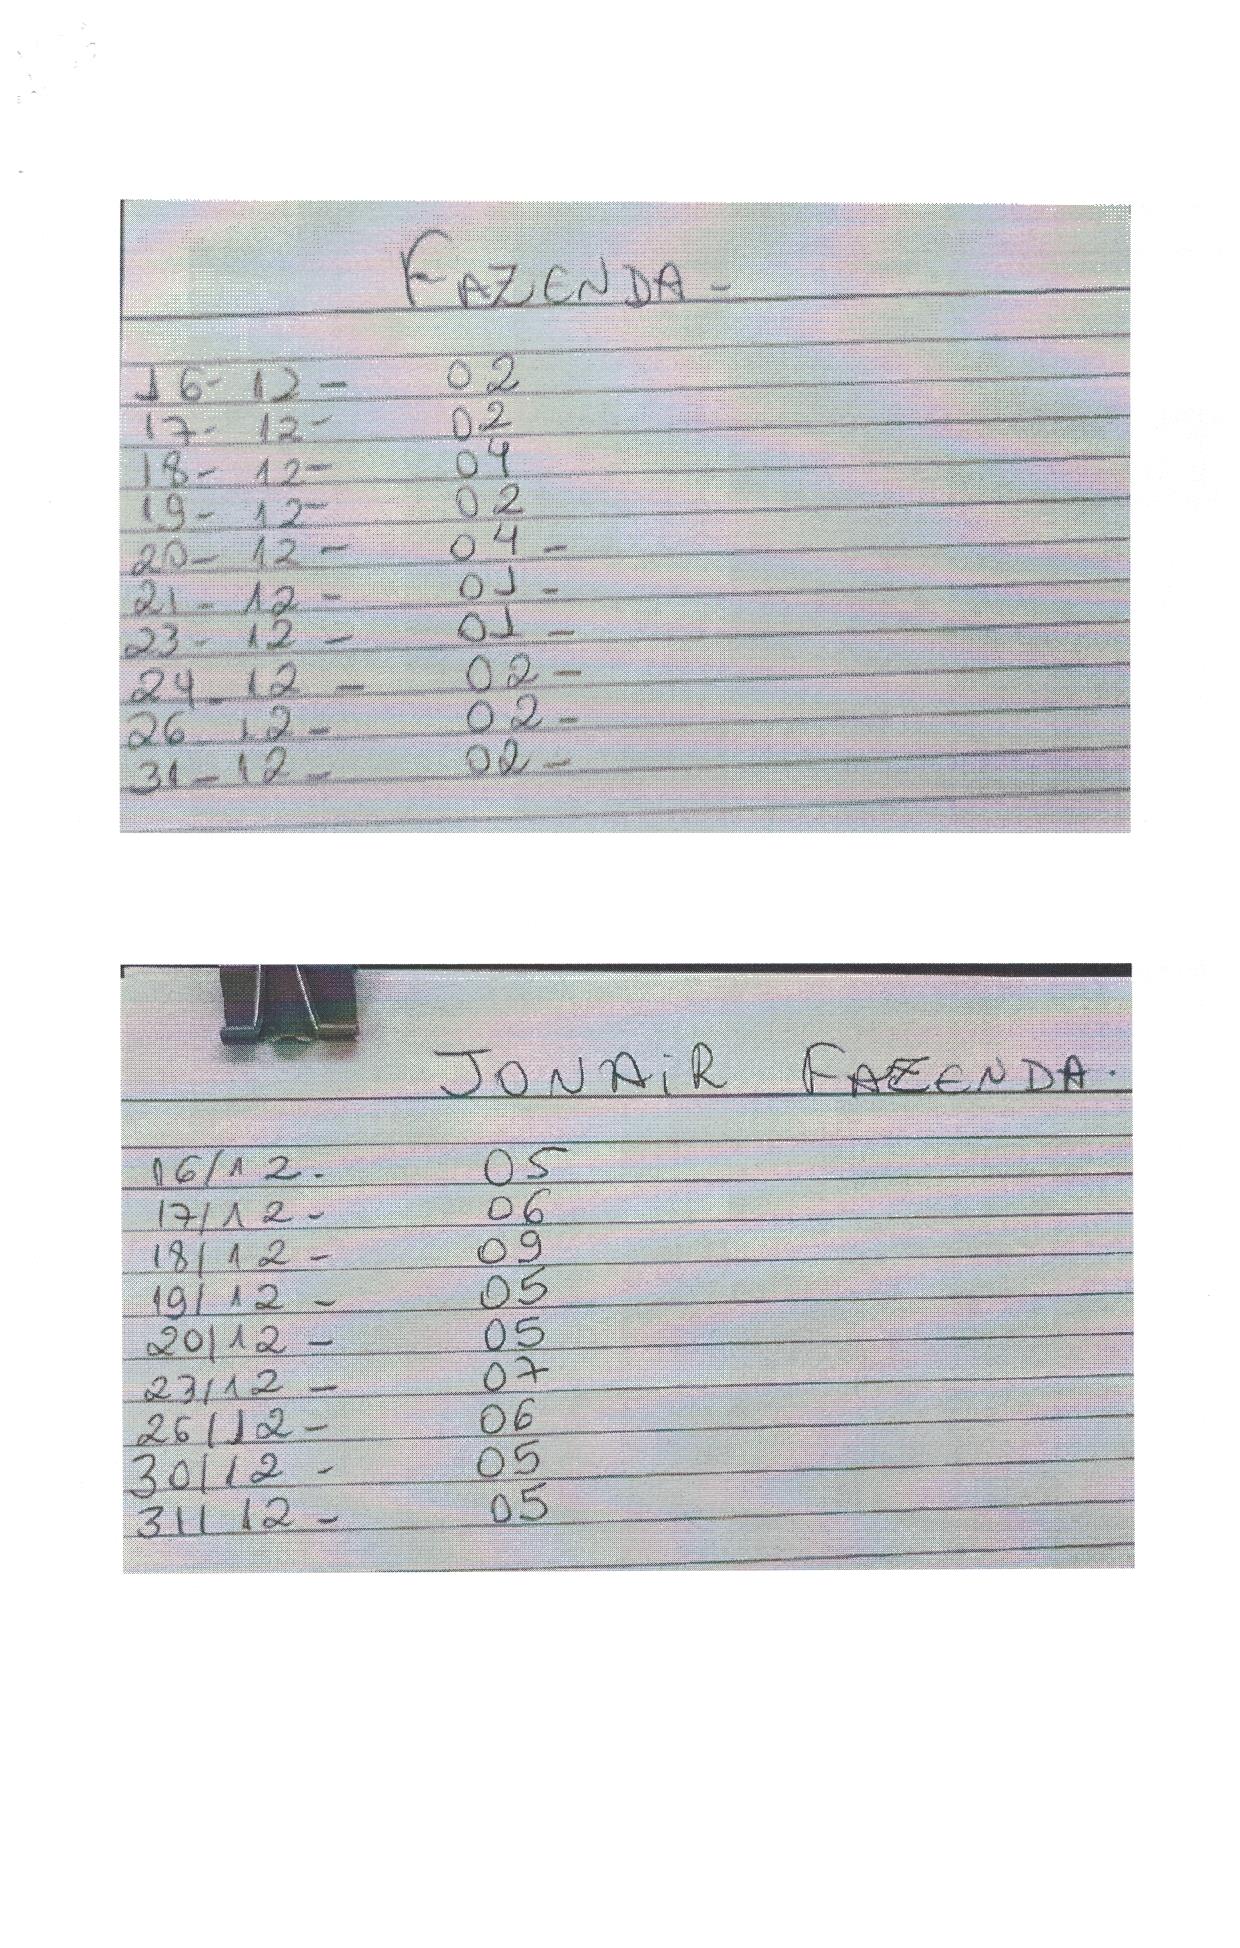 FAZENDA -
16- 12 - 02
17- 12- 02
18- 12- 04
19- 12- 02
20- 12 - 04 -
21- 12 - 01 -
23- 12 - 01 -
24-12 - 02 -
26 12 - 02 -
31-12 - 02 -
JONAIR FAZENDA.
16/12- 05
17/12 - 06
18/12 - 09
19/12 - 05
20/12 - 05
23/12 - 07
26/12 - 06
30/12 - 05
31/12 - 05